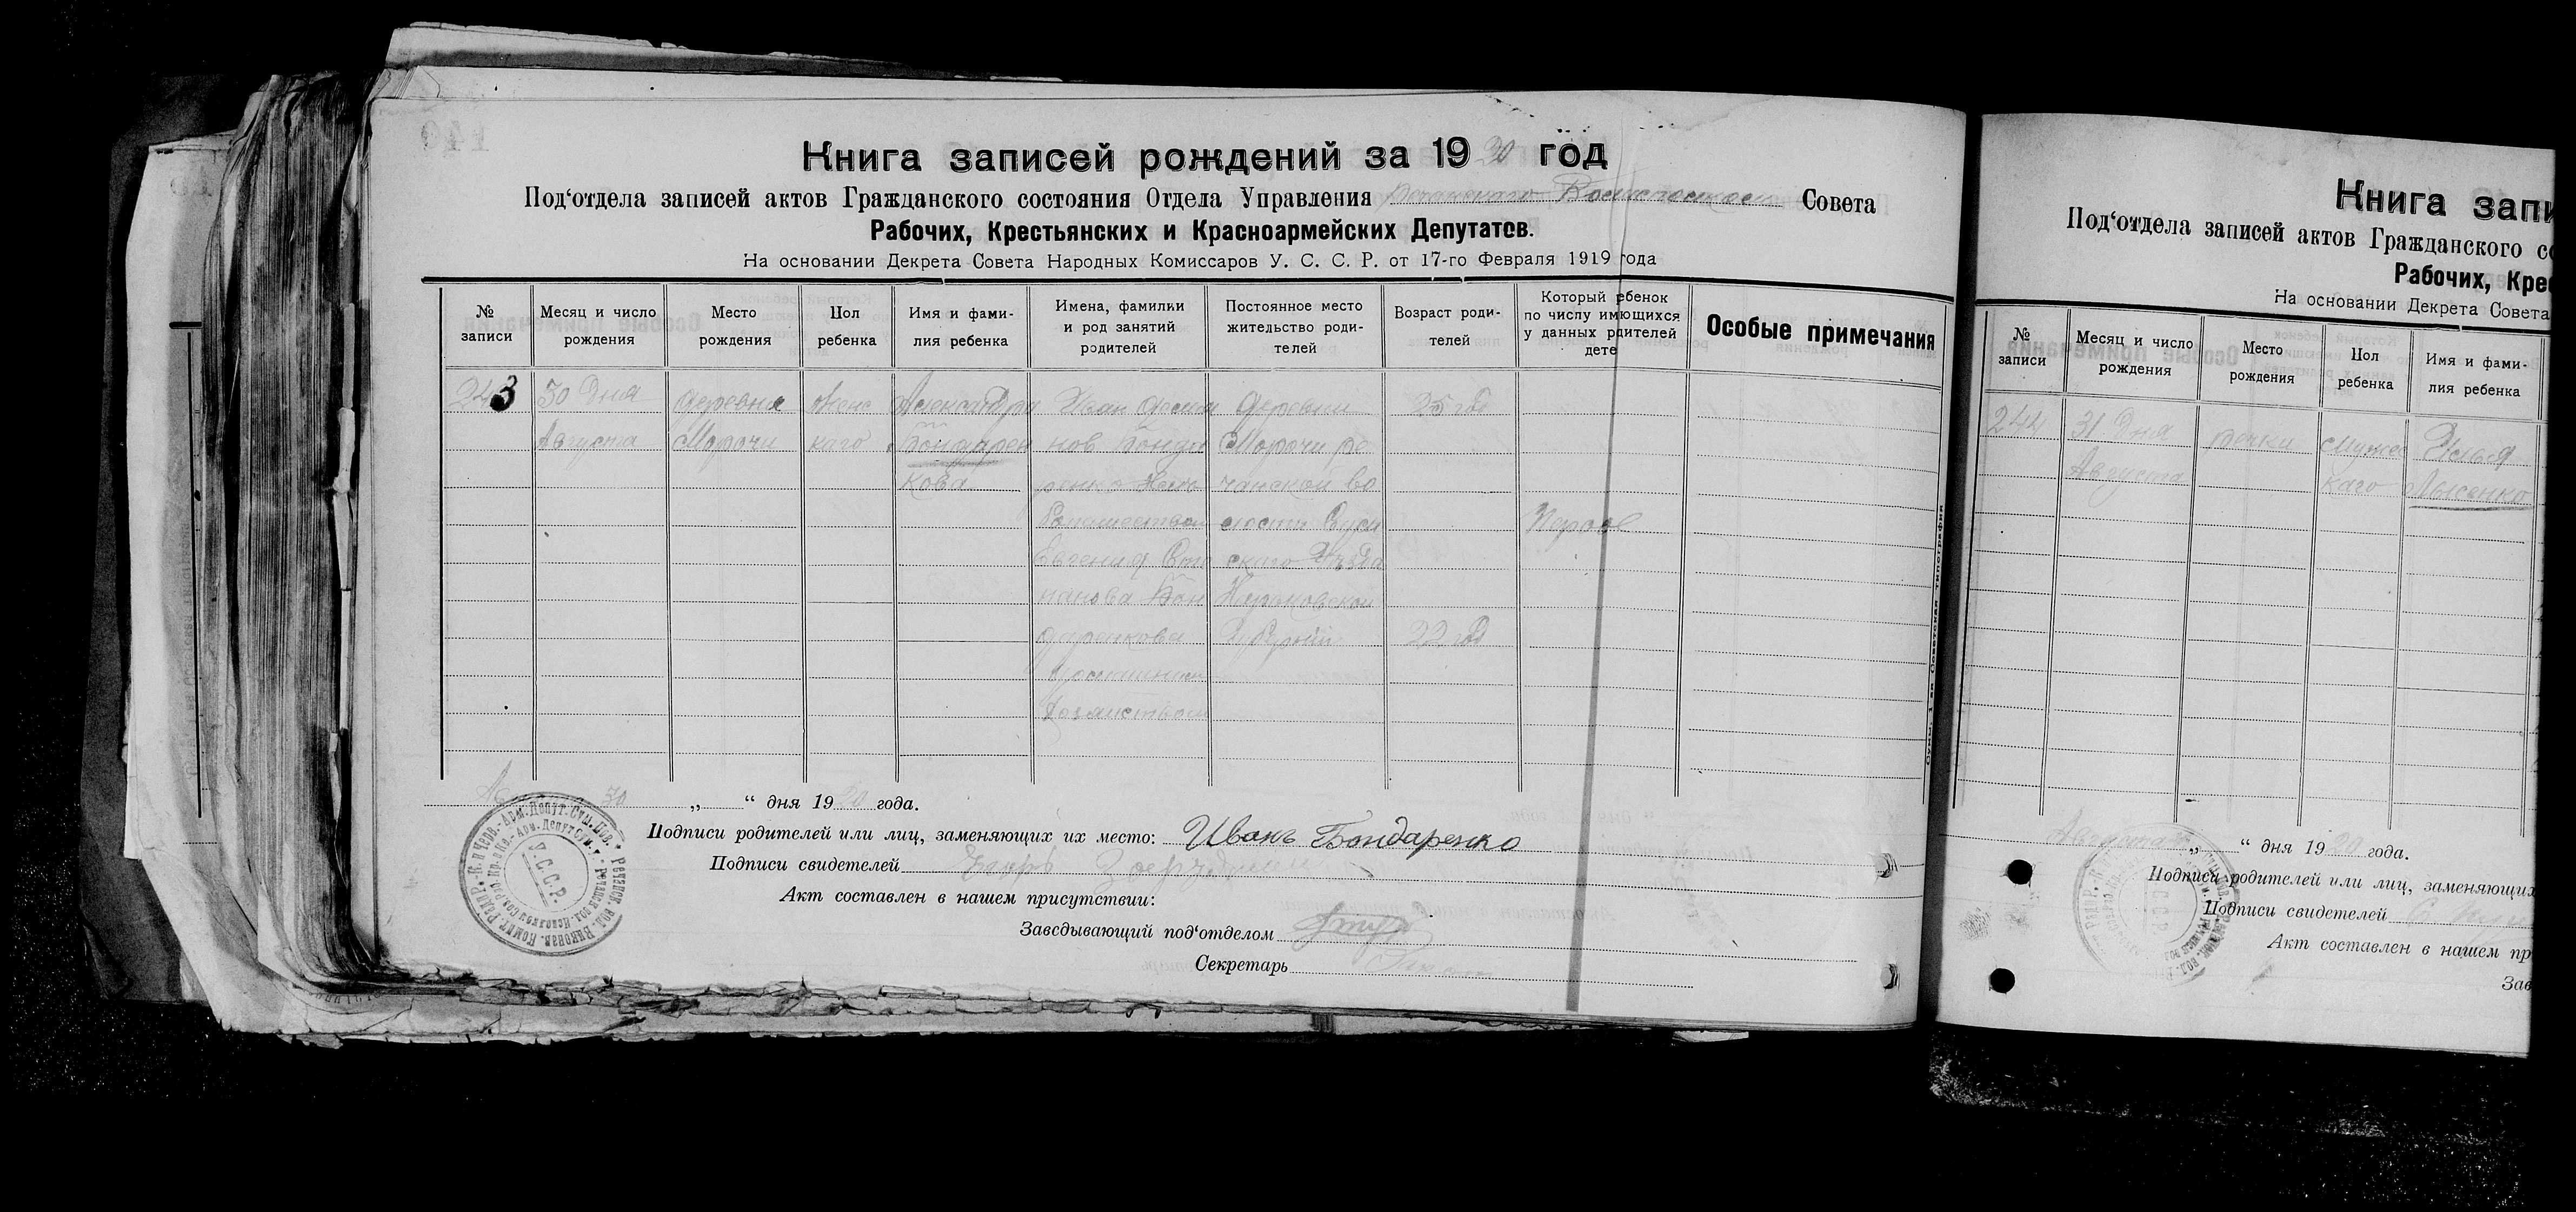 Книга записей рождений за 1920 год
Под‘отдела записей актов Гражданского состояния Отдела Управления Совета
Рабочих, Крестьянских и Красноармейских Депутатов.
На основании Декрета Совета Народных Комиссаров У. С. С. Р. от 17-го Февраля 1919 года
№ записи
Месяц и число рождения
Место рождения
Пол ребенка
Имя и фами-
лия ребенка
Имена, фамильи
и род занятий
родителей
Постоянное место
жительство роди-
телей
Возраст роди-
телей
Который ребенок
по числу имеющихся
у данных родителей
дете
Особые примечания
243
30 Дня
Августа
деревня
Морочи
Женс
каго
Александра
Бондарен
кова
Иван
нов Бонда
ренко
Евгения Сте
панова Бон
даренкова
Домашним
Хозяйством
деревни
Морочи Ре
чанской во
лости Сум
скаго Уезда
Харьковской
Губернии
25 год
22 год
Первое
30 „ “ дня 1920 года.
Подписи родителей или лиц, заменяющих их место: Иванъ Бондаренко
Подписи свидетелей
Акт составлен в нашем присутствии:
Заведывающий под‘отделом
Секретарь
У.С.С.Р.
Сумы, 1-я Советская типография
Книга запи
Под‘отдела записей актов Гражданского со
Рабочих, Крес
На основании Декрета Совета
№ записи
Месяц и число рождения
Место рождения
Пол ребенка
Имя и фами-
лия ребенка
244
31 Дня
Августа
Речки
Мужес
каго
Илья
Лысенко
Августа „ “ дня 1920 года.
Подписи родителей или лиц, заменяющих
Подписи свидетелей
Акт составлен в нашем пр
Зав